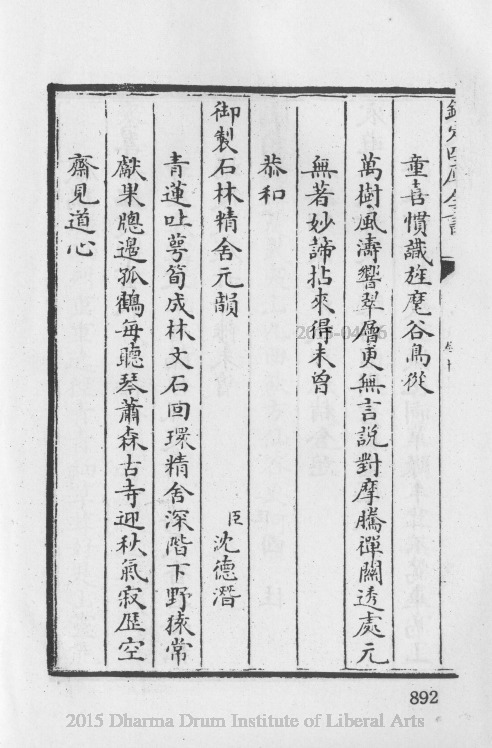 欽定四庫全書
童喜慣識旌麾谷鳥從
萬樹風濤響翠層更無言說對摩騰禪關透處元
無著妙諦拈來得未曾
恭和
御製石林精舍元韻
臣沈德潛
青蓮吐萼筍成林文石回環精舍深階下野猿常
獻果牕邊孤鶴每聽琴蕭森古寺迎秋氣寂歷空
齋見道心
892
2015 Dharma Drum Institute of Liberal Arts